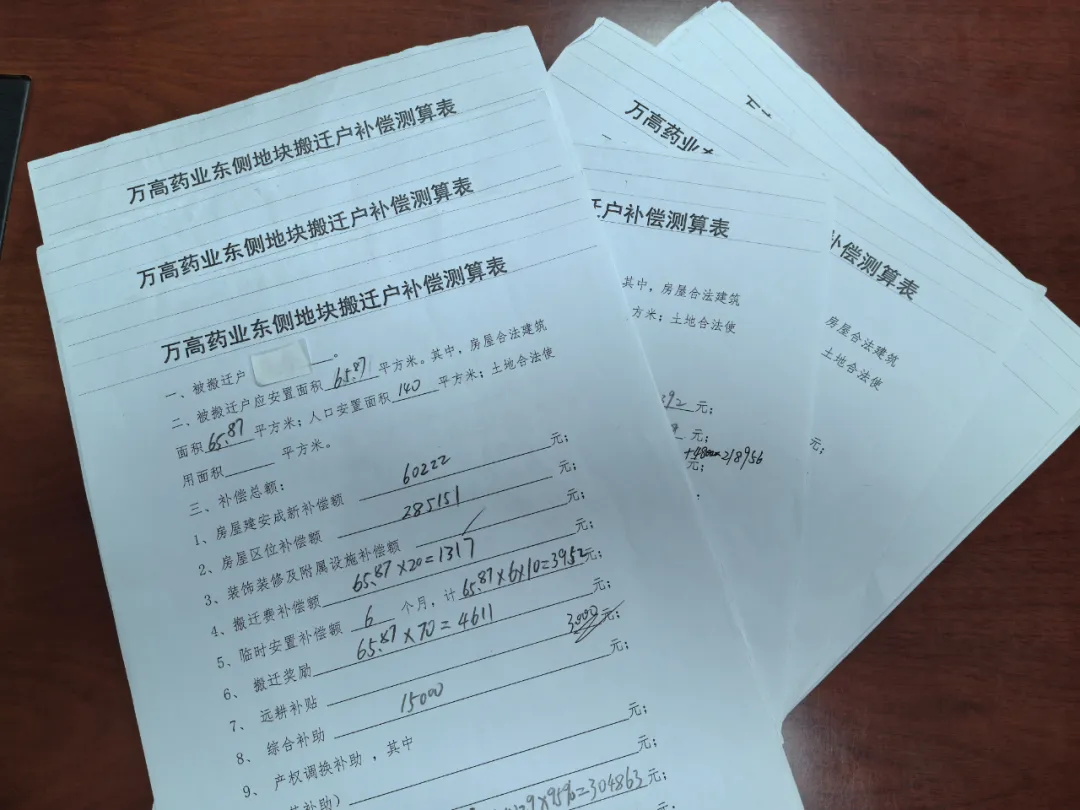 万高药业东侧地块搬迁户补偿测算表
万高药业东侧地块搬迁户补偿测算表
万高药业东侧地块搬迁户补偿测算表
一、被搬迁户 。
二、被搬迁户应安置面积 65.87 平方米。其中，房屋合法建筑
面积 65.87 平方米；人口安置面积 140 平方米；土地合法使
用面积 平方米。
三、补偿总额：
1、房屋建安成新补偿额 60222 元；
2、房屋区位补偿额 285151 元；
3、装饰装修及附属设施补偿额 元；
4、搬迁费补偿额 65.87×20=1317 元；
5、临时安置补偿额 6 个月，计 65.87×6×10=3952 元；
6、搬迁奖励 65.87×70=4611 元；
7、远耕补贴 3000 元；
8、综合补助 15000 元；
9、产权调换补助，其中
元；
补助） 元；
9×95%=304863 元；
元。
万高药业
迁户补偿测算表
其中，房屋合法建筑
方米；土地合法使
392 元；
元；
218956
元；
补偿测算表
房屋合法建筑
土地合法使
元；